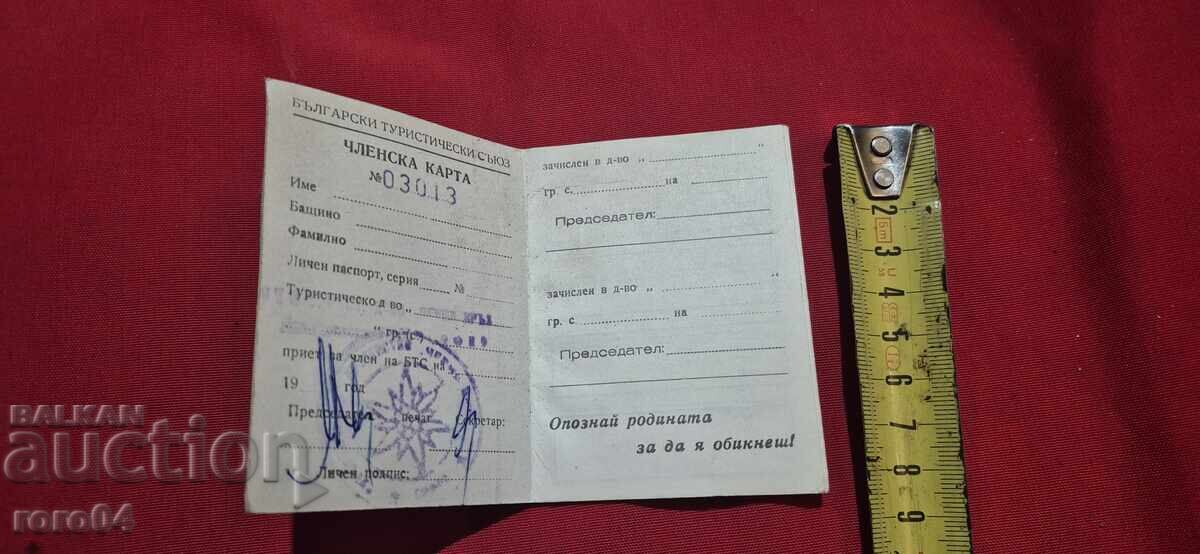 БЪЛГАРСКИ ТУРИСТИЧЕСКИ СЪЮЗ
ЧЛЕНСКА КАРТА
№ 03013
Име
Бащино
Фамилно
Личен паспорт, серия № 
Туристическо д во „
" гр. (с)
приет за член на БТС на
19 год
Председател печат Секретар:
Личен подпис:
зачислен в д-во „ "
гр. с. на
Председател:
зачислен в д-во „ "
гр. с на
Председател:
Опознай родината
за да я обикнеш!
2
5m
3
4
5
6
7
8
9
BALKAN
auction
roro04